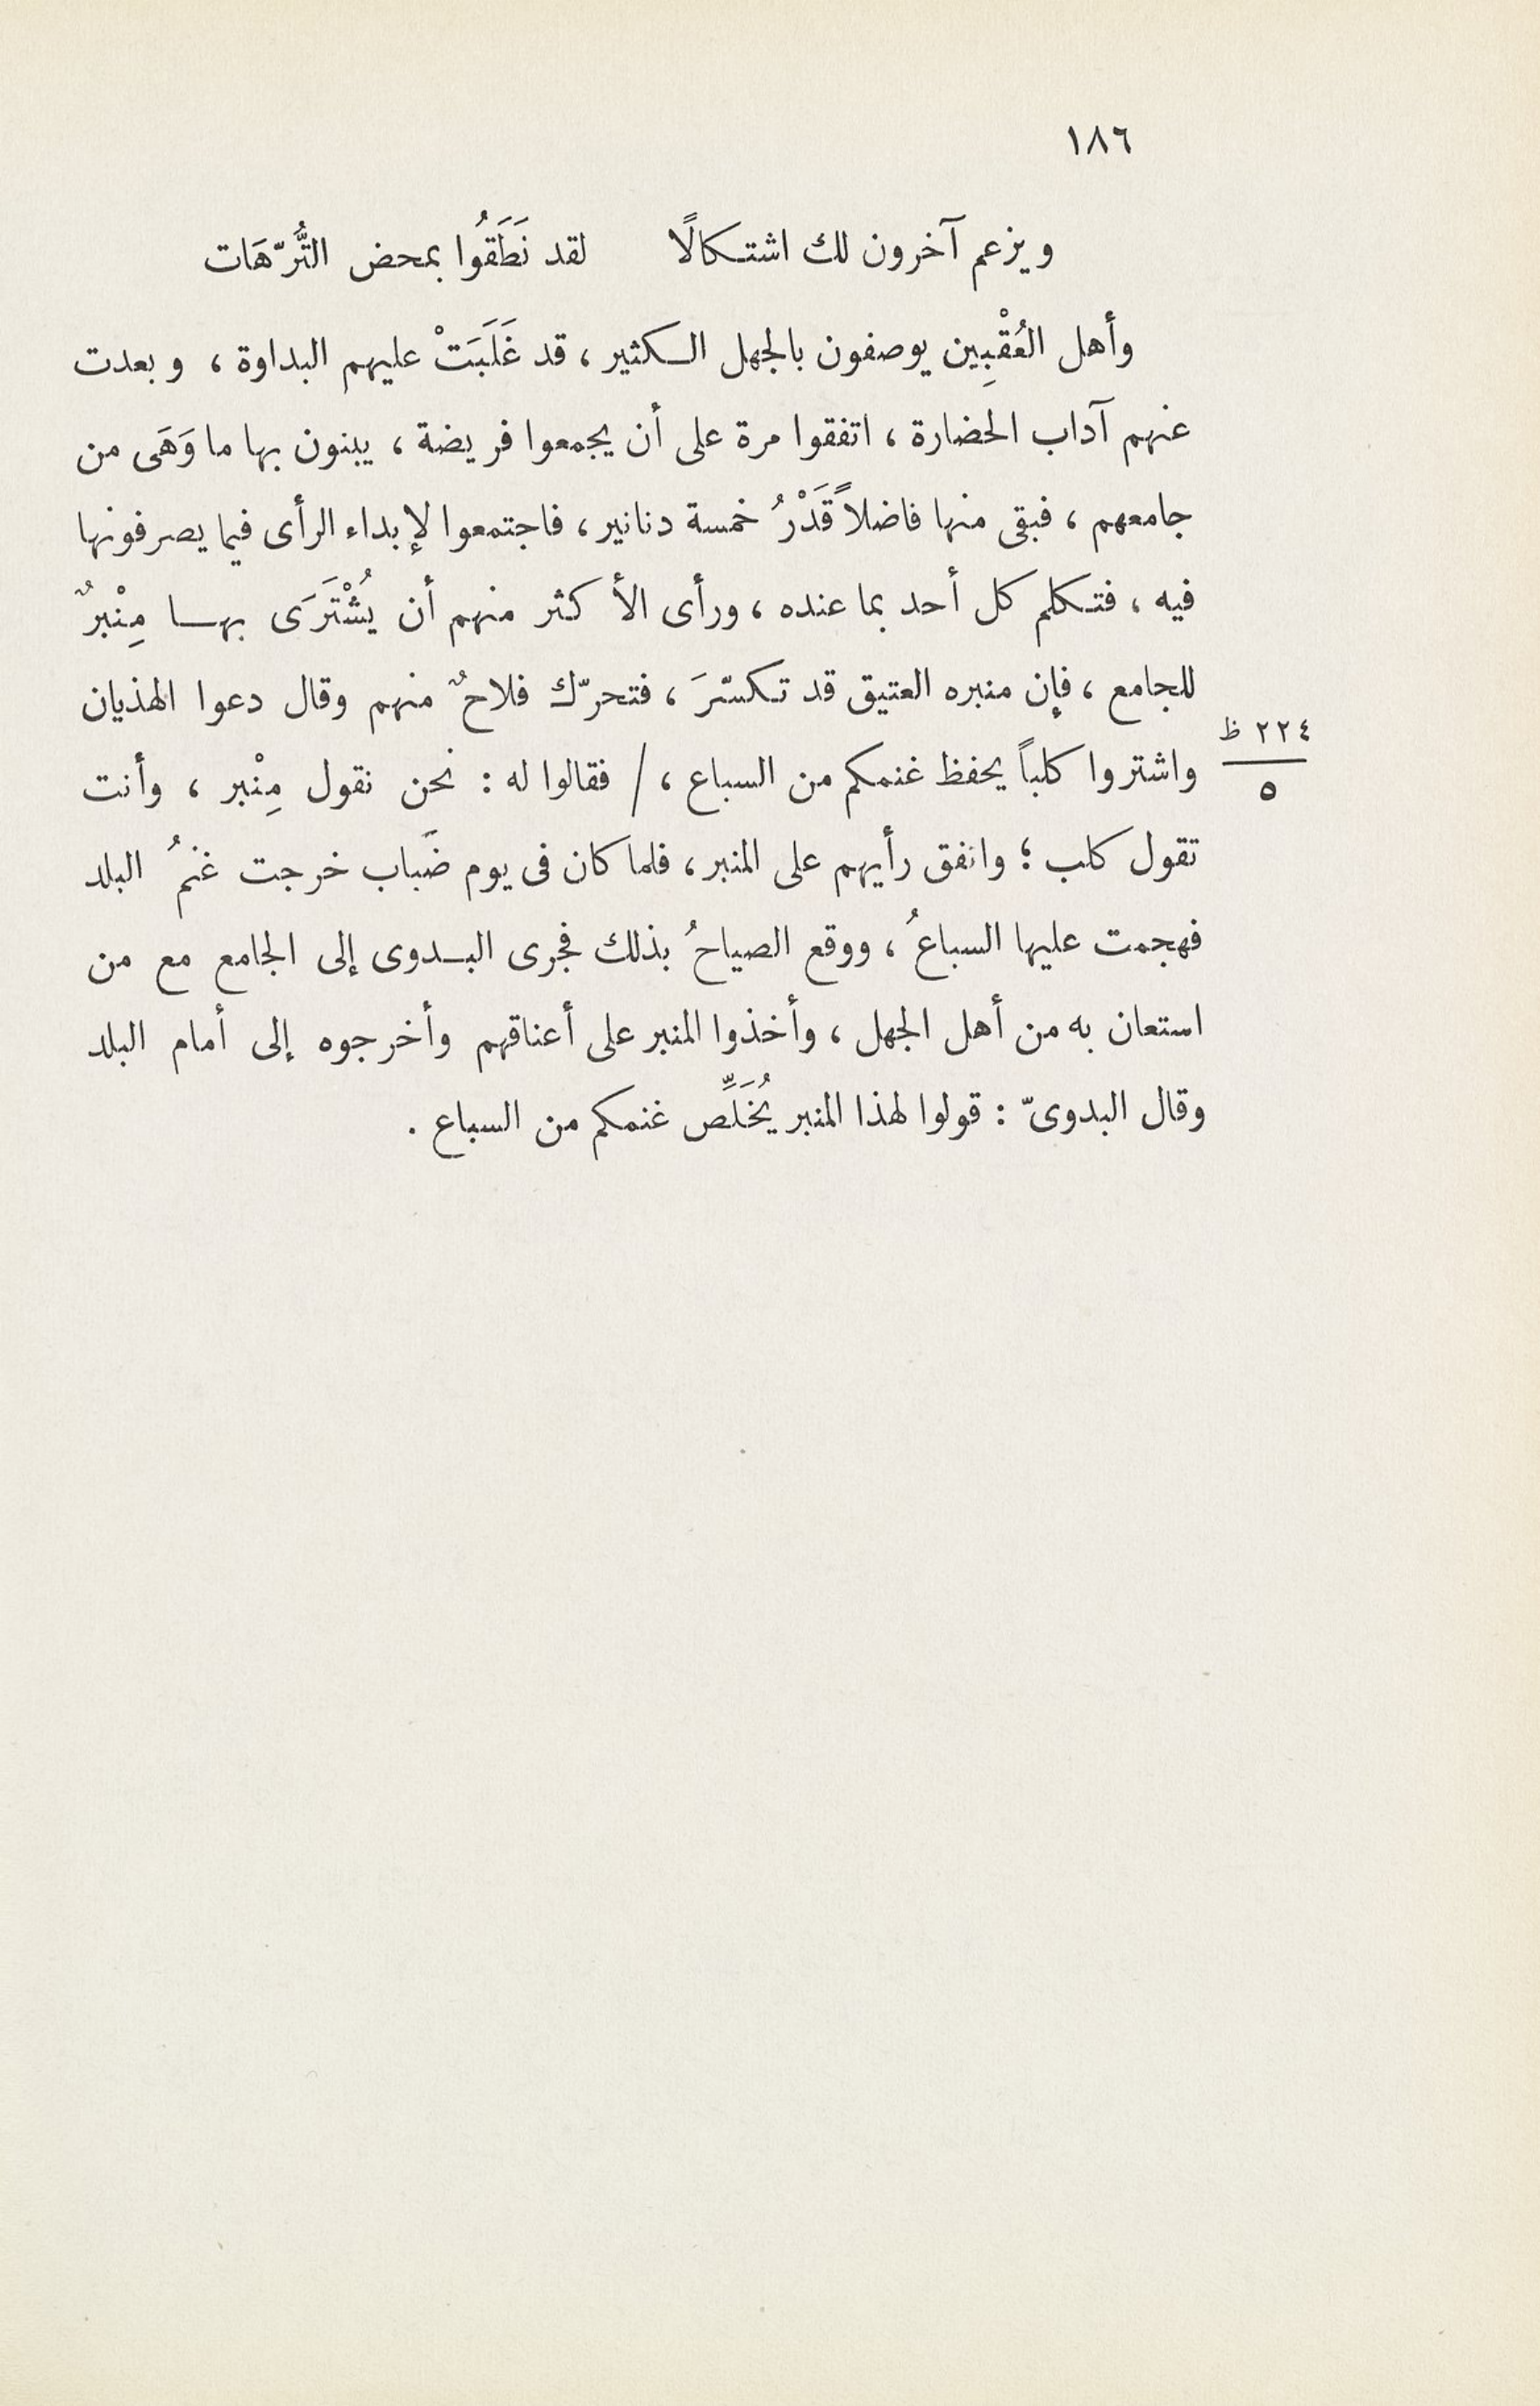 ١٨٦
ويزعم آخرون لك اشتكالًا لقد نَطَقُوا بمحض التُّرّهَات
وأهل العُقْبِيين يوصفون بالجهل الكثير ، قد غَلَبَتْ عليهم البداوة ، وبعدت
عنهم آداب الحضارة ، اتفقوا مرة على أن يجمعوا فريضة ، يبنون بها ما وَهَى من
جامعهم ، فبقى منها فاضلاً قَدْرُ خمسة دنانير ، فاجتمعوا لإبداء الرأى فيما يصرفونها
فيه ، فتكلم كل أحد بما عنده ، ورأى الأكثر منهم أن يُشْتَرَى بها مِنْبرٌ
للجامع ، فإن منبره العتيق قد تكسّرَ ، فتحرّك فلاحٌ منهم وقال دعوا الهذيان
٢٢٤ ظ
٥
واشتروا كلباً يحفظ غنمكم من السباع ، / فقالوا له : نحن نقول مِنْبر ، وأنت
تقول كلب ؛ واتفق رأيهم على المنبر ، فلما كان فى يوم ضَباب خرجت غنمُ البلد
فهجمت عليها السباعُ ، ووقع الصياحُ بذلك فجرى البدوى إلى الجامع مع من
استعان به من أهل الجهل ، وأخذوا المنبر على أعناقهم وأخرجوه إلى أمام البلد
وقال البدوىّ : قولوا لهذا المنبر يُخَلِّص غنمكم من السباع .